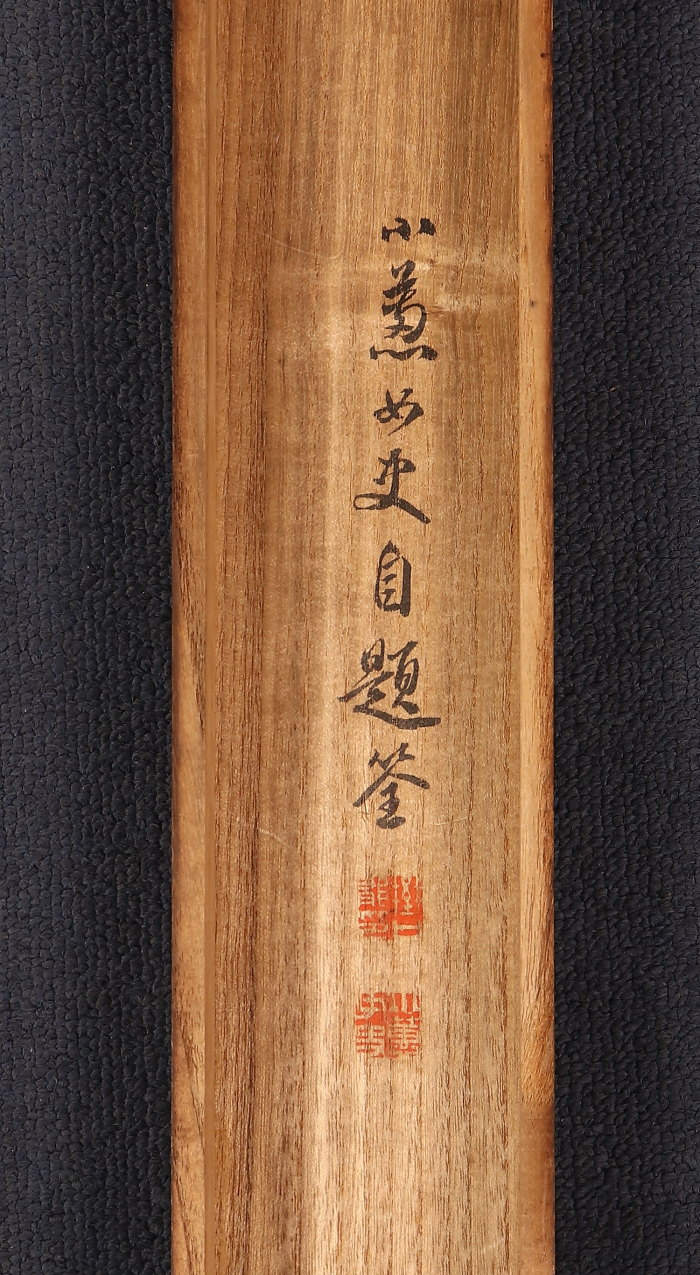 小蕙女史自題筌